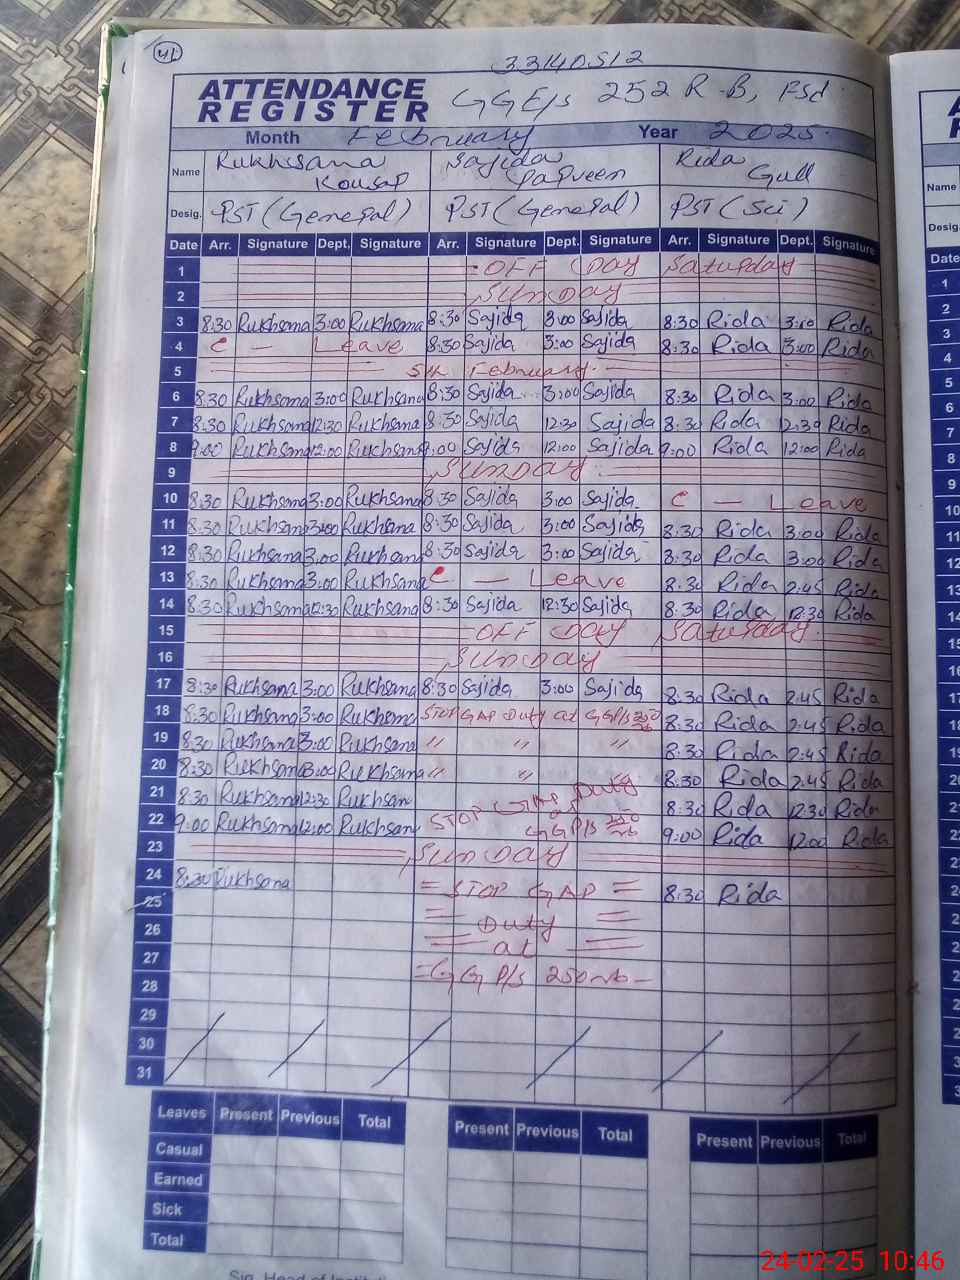 41
33140512
ATTENDANCE REGISTER GGE/s 252 R-B, Fsd
Month February Year 2025
Name Rukhsana Kousar Sajida Parveen Rida Gull
Desig. PST (General) PST (General) PST (Sci)
Date Arr. Signature Dept. Signature Arr. Signature Dept. Signature Arr. Signature Dept. Signature
1 OFF Day Saturday
2 Sunday
3 8:30 Rukhsana 3:00 Rukhsana 8:30 Sajida 3:00 Sajida 8:30 Rida 3:00 Rida
4 c — Leave 8:30 Sajida 3:00 Sajida 8:30 Rida 3:00 Rida
5 5th February
6 8:30 Rukhsana 3:00 Rukhsana 8:30 Sajida 3:00 Sajida 8:30 Rida 3:00 Rida
7 8:30 Rukhsana 12:30 Rukhsana 8:30 Sajida 12:30 Sajida 8:30 Rida 12:30 Rida
8 9:00 Rukhsana 12:00 Rukhsana 9:00 Sajida 12:00 Sajida 9:00 Rida 12:00 Rida
9 Sunday
10 8:30 Rukhsana 3:00 Rukhsana 8:30 Sajida 3:00 Sajida c — Leave
11 8:30 Rukhsana 3:00 Rukhsana 8:30 Sajida 3:00 Sajida 8:30 Rida 3:00 Rida
12 8:30 Rukhsana 3:00 Rukhsana 8:30 Sajida 3:00 Sajida 8:30 Rida 3:00 Rida
13 8:30 Rukhsana 3:00 Rukhsana c — Leave 8:30 Rida 2:45 Rida
14 8:30 Rukhsana 12:30 Rukhsana 8:30 Sajida 12:30 Sajida 8:30 Rida 12:30 Rida
15 OFF Day Saturday
16 Sunday
17 8:30 Rukhsana 3:00 Rukhsana 8:30 Sajida 3:00 Sajida 8:30 Rida 2:45 Rida
18 8:30 Rukhsana 3:00 Rukhsana STOP GAP Duty at GGP/s 250 8:30 Rida 2:45 Rida
19 8:30 Rukhsana 3:00 Rukhsana " " " 8:30 Rida 2:45 Rida
20 8:30 Rukhsana 3:00 Rukhsana " " 8:30 Rida 2:45 Rida
21 8:30 Rukhsana 12:30 Rukhsan STOP GAP Duty 8:30 Rida 12:30 Rida
22 9:00 Rukhsana 12:00 Rukhsana GGP/s 250 9:00 Rida 12:00 Rida
23 Sunday
24 8:30 Rukhsana = STOP GAP = 8:30 Rida
25
26 Duty
27 at
28 GGP/s 250
29
30
31
Leaves Present Previous Total Present Previous Total Present Previous Total
Casual
Earned
Sick
Total
Name
Desig.
Date
1
2
3
4
5
6
7
8
9
10
11
12
13
14
24-02-25 10:46